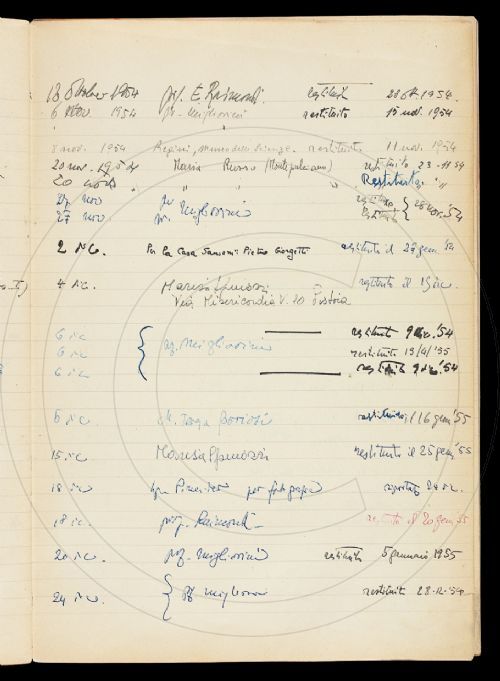 13 Ottobre 1954 prof. E. Raimondi restituito 28 ott. 1954.
6 Nov. 1954 pr. Migliorini restituito 15 nov. 1954
8 nov. 1954 museo delle Scienze. restituito 11 nov. 1954
20 nov. 1954 Maria Russo (Montepulciano) restituito 23-11-54
20 nov. " " Restituito "
27 nov pr. Migliorini restituito
27 nov pr. restituito 54
2 dic. Per la Casa Sansoni: Pietro Giorgetti restituito il 27 gen.
4 dic. Marisa restituito il dic.
Via Misericordia V. 20 Pistoia
6 dic restituito 9 dic. '54
6 dic Migliorini restituito 19/4/'55
6 dic restituito 9 dic. '54
6 dic restituito 16 gen '55
15 dic Marisa restituito il 25 gen '55
18 dic per fotografia riportato 24 dic.
18 dic. prof. Raimondi il 20 gen 55
20 dic. prof. Migliorini restituito 5 gennaio 1955
24 dic. Migliorini restituito 28.12.'54